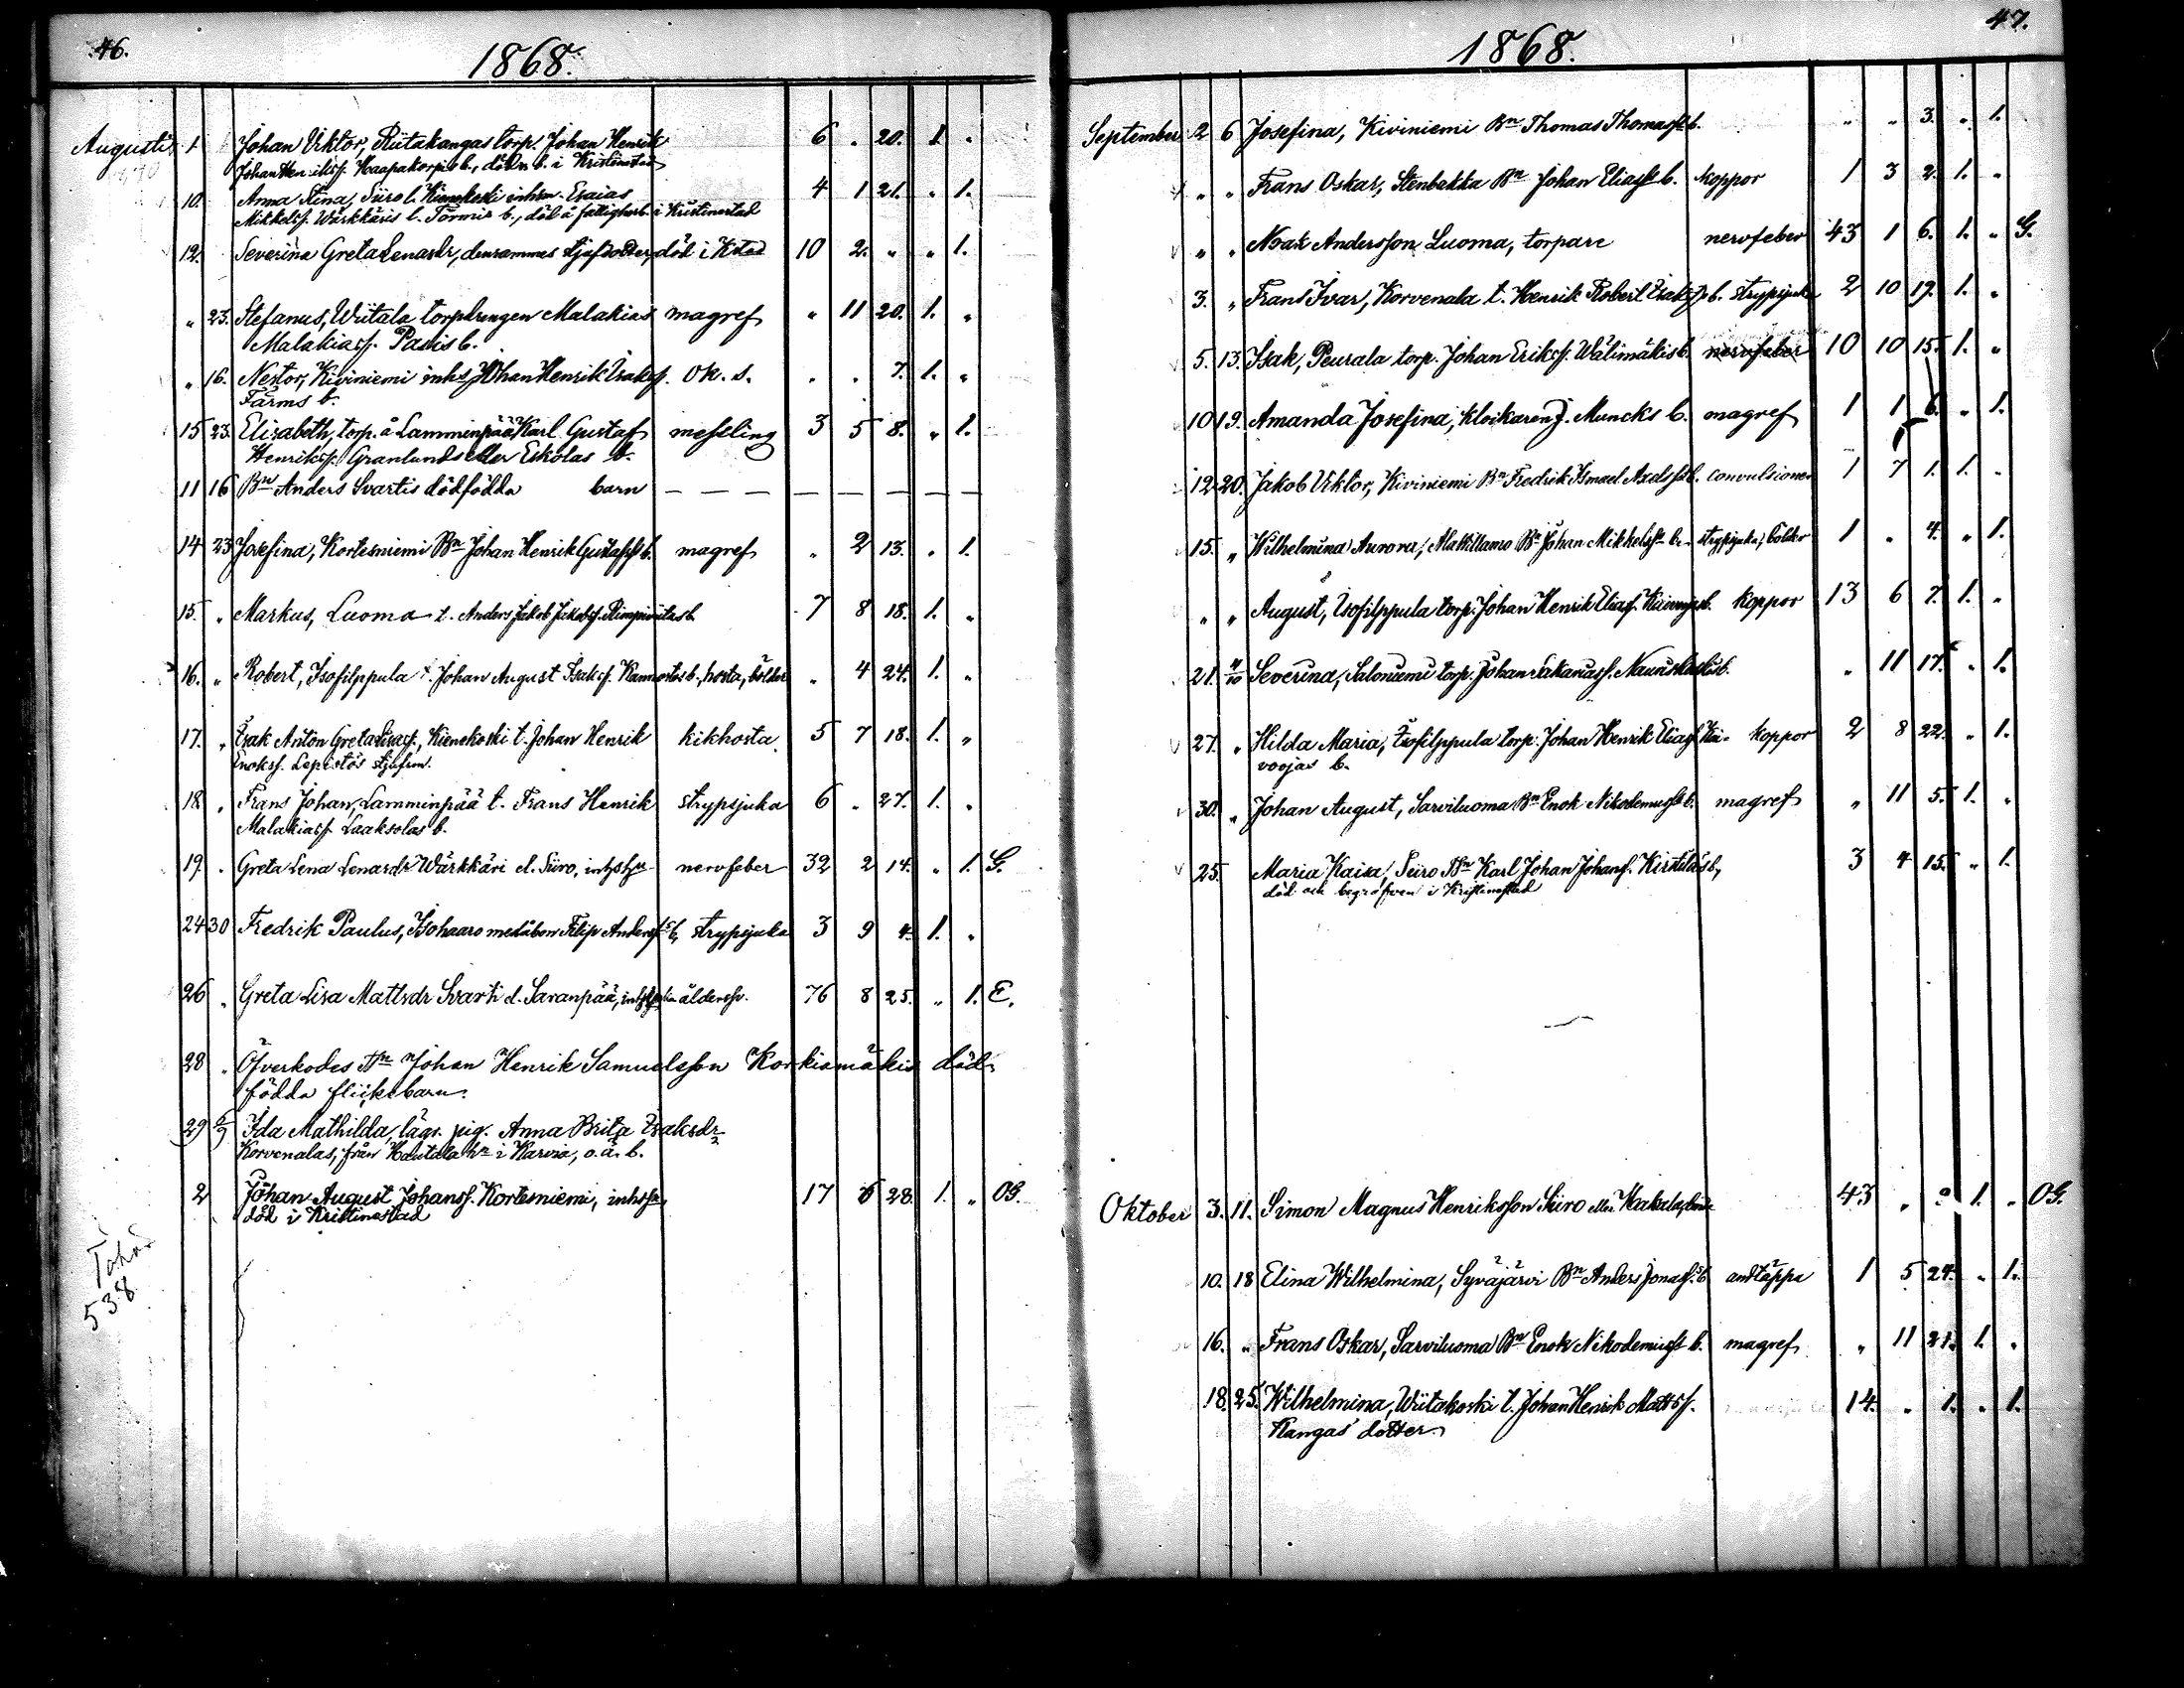 46.
1868.
Augusti 1. Johan Viktor, Riitakangas torp. Johan Henrik 6 „ 20. 1. „
Johan Henrikss. Haapakorpis b., döda b. i Kristinestad
10. Anna Stina, Siiro l. Kienekoski inhs. Esaias 4 1 21. „ 1.
Mikkelss. Wärkkäris l. Törmis b., död å fattighusb. i Kristinestad
12. Severina Greta Lenasdr, densammes stjufdotter, död i Kstad 10 2. „ „ 1.
„ 23. Stefanus, Wiitala torpdrengen Malakias magref „ 11 20. 1. „
Malakiass. Pasis b.
„ 16. Nestor, Kiviniemi inhs Johan Henrik Isakss. ok. s. „ „ 7. 1. „
Färms b.
15 23. Elisabeth, torp. å Lamminpää Karl Gustaf messling 3 5 8. „ 1.
Henrikss. Granlunds eller Eskolas b.
11 16 Bn Anders Svartis dödfödda barn — — — — — — — —
14 23 Josefina, Kortesniemi Bn Johan Henrik Gustafss b. magref „ 2 13. „ 1.
15. „ Markus, Luoma t. Anders Jakob Jakobss. b. 7 8 18. 1. „
16. „ Robert, Isofilppula t. Johan August Isakss. Kannostos b., hosta, bölder „ 4 24. 1. „
17. „ Isak Anton Greta Lisas., Kienekoski t. Johan Henrik kikhosta 5 7 18. 1. „
Enokss. Lepistös stjufson.
18. „ Frans Johan, Lamminpää t. Frans Henrik strypsjuka 6 „ 27. 1. „
Malakiass. Laaksolas b.
19. „ Greta Lena Lenardr Wärkkäri el. Siiro, inhshu nervfeber 32 2 14. „ 1. G.
24 30 Fredrik Paulus, Isohaaro medåbon Filip Anderss b, strypsjuka 3 9 4. 1. „
26 „ Greta Lisa Mattsdr Svarti el. Saranpää, ålderssv. 76 8 25. „ 1. E.
28 „ Öfverkodes Bn Johan Henrik Samuelsson Korkiamäkis död-
födda flickebarn.
29 6/9 Ida Mathilda, lägr. pig. Anna Brita Isaksdr
Korvenalas, från Hautala hn i Karvia, o.ä. b.
2 Johan August Johanss. Kortesniemi, inhsson 17 6 28. 1. „ OG.
död i Kristinestad
538
47.
1868.
September 2 6 Josefina, Kiviniemi Bn Thomas Thomass b. „ „ 3. „ 1.
„ „ Frans Oskar, Stenbakka Bn Johan Eliass b. koppor 1 3 2. 1. „
„ „ Noak Andersson Luoma, torpare nervfeber 43 1 6. 1. „ G.
3. „ Frans Ivar, Korvenala t. Henrik Robert Isakss b. strypsjuka 2 10 19. 1. „
5. 13. Isak, Peurala torp. Johan Erikss. Wälimäkis b. nervfeber 10 10 15. 1. „
10 19. Amanda Josefina, klockaren J. Muncks b. magref 1 1 6. „ 1.
12 20. Jakob Viktor, Kiviniemi Bn Fredrik Ismael Axelss b. convulsioner 1 7 1. 1. „
15. „ Wilhelmina Aurora, Alakillamo Bn Johan Mikkelss b. strypsjuka, bölder 1 „ 4. „ 1.
„ „ August, Isofilppula torp. Johan Henrik Eliass. Kiivoojas b. koppor 13 6 7. 1. „
21. 4/10 Severina, Saloniemi torp. Johan Sakariass. b. „ 11 17. „ 1.
27. „ Hilda Maria, Isofilppula torp. Johan Henrik Eliass Kii- koppor 2 8 22. „ 1.
voojas b.
30. „ Johan August, Sarviluoma Bn Enok Nikodemuss b. magref „ 11 5. 1. „
25. Maria Kaisa, Siiro Bn Karl Johan Johanss. Kirstiläs b, 3 4 15. „ 1.
död och begrafven i Kristinestad
Oktober 3. 11. Simon Magnus Henriksson Siiro eller Hakala, 43 „ 2 1. „ OG.
10. 18 Elina Wilhelmina, Syväjärvi Bn Anders Jonass. b andtäppa 1 5 24. „ 1.
16. „ Frans Oskar, Sarviluoma Bn Enok Nikodemuss b. magref „ 11 21. 1. „
18. 25. Wilhelmina, Wiitakoski t. Johan Henrik Mattss. 14. „ 1. „ 1.
Kangas dotter.